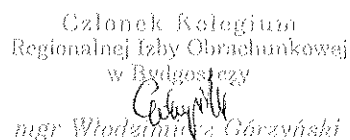 Członek Kolegium
Regionalnej Izby Obrachunkowej
w Bydgoszczy
mgr Włodzimierz Górzyński